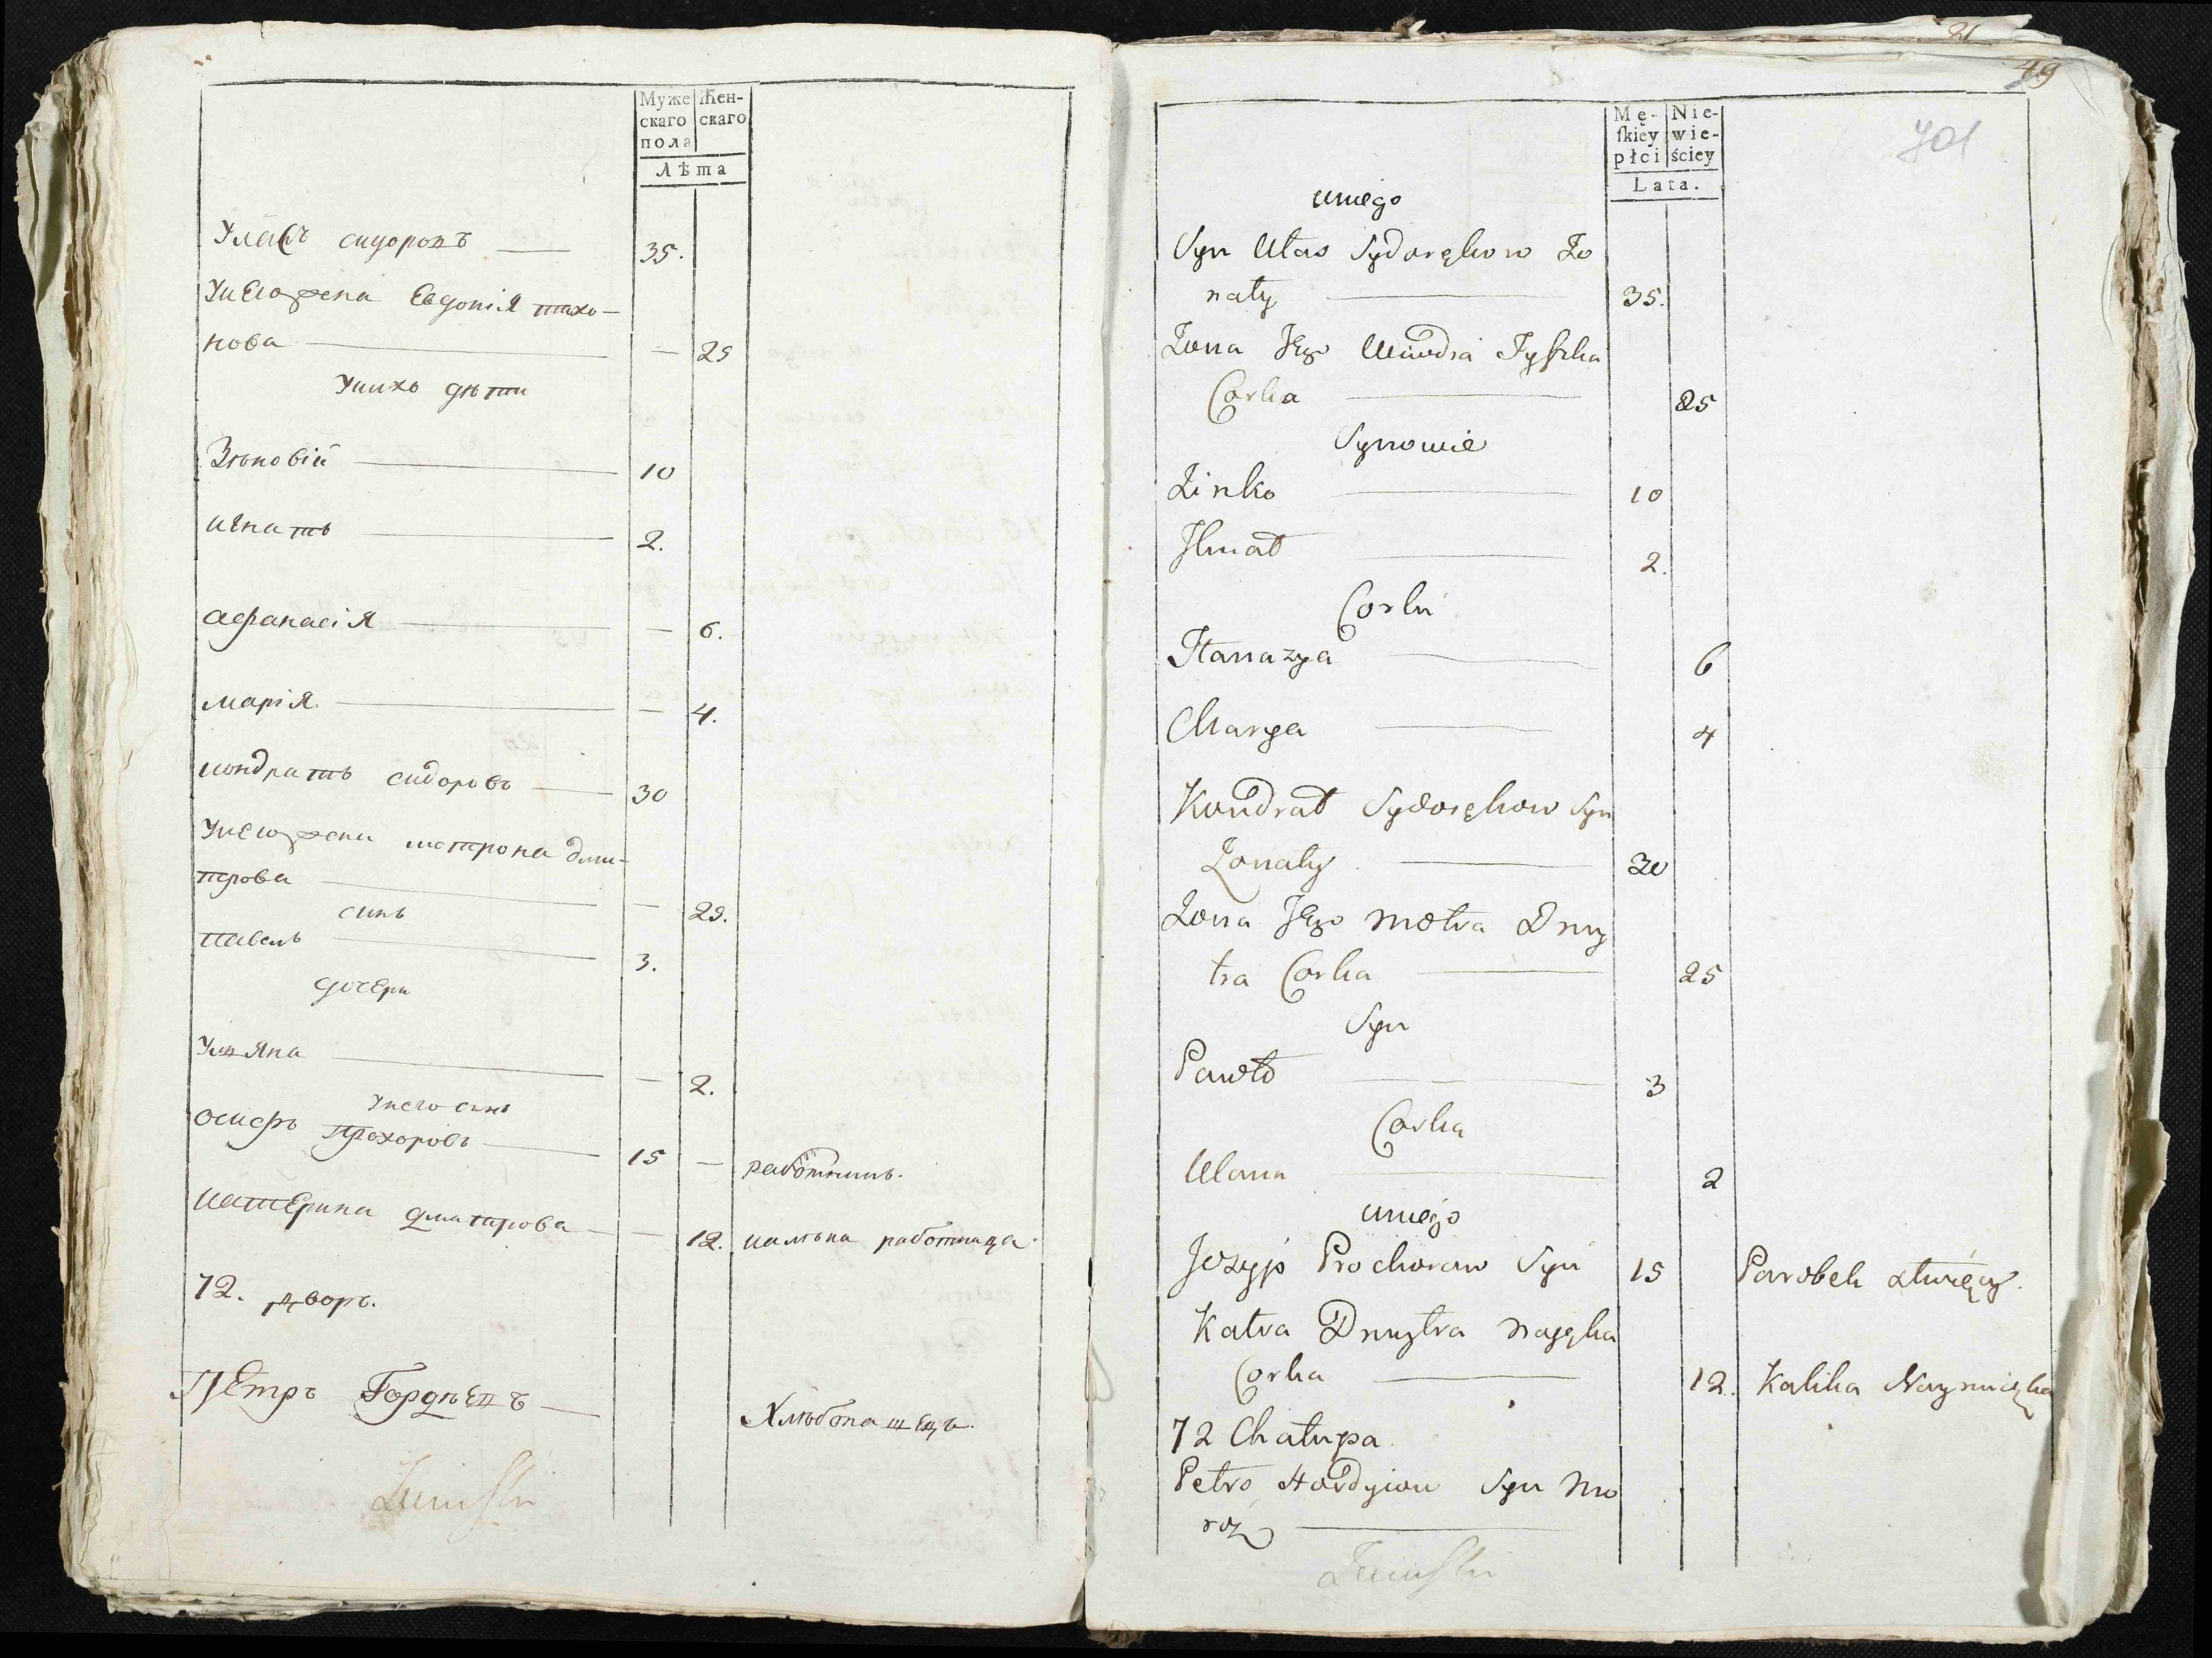 Муже Жен-
скаго скаго
пола
Лѣта
Уласъ сидоровъ — 35.
Унего жена Евдокія тихо-
нова — — 25
Унихъ дѣти
Зѣновій — 10
игнатъ — 2.
афанасія — — 6.
марія — — 4.
кондратъ сидоровъ — 30
Унего жена мотрона дми-
трова — — 25.
синъ
павелъ — 3.
дочери
Уляна — — 2.
Унего синъ
осифъ прохоровъ — 15 — работникъ.
катерина дмитрова — — 12. калѣка работница.
72. дворъ.
Петръ Гордѣевъ — Хлѣбопашецъ.
81
49
701
Mę- Nie-
ſkiey wie-
płci ściey
Lata.
uniego
Syn Ułas Sydorękow Żo
naty — 35.
Żona Jego Uwdia Tyszka
Corka — 25
Synowie
Zinko — 10
Ihnat — 2.
Corki
Atanazya — 6
Marya — 4
Kondrat Sydorękow Syn
Żonaty — 30
Żona Jego Motra Dmy
tra Corka — 25
Syn
Pawło — 3
Corka
Ulana — 2
uniego
Jozyp Prochorow Syn 15 Parobek
Katra Dmytra
Corka — 12. Kalika Naymiczka
72 Chałupa
Petro Hordyiow Syn Mo
roz —